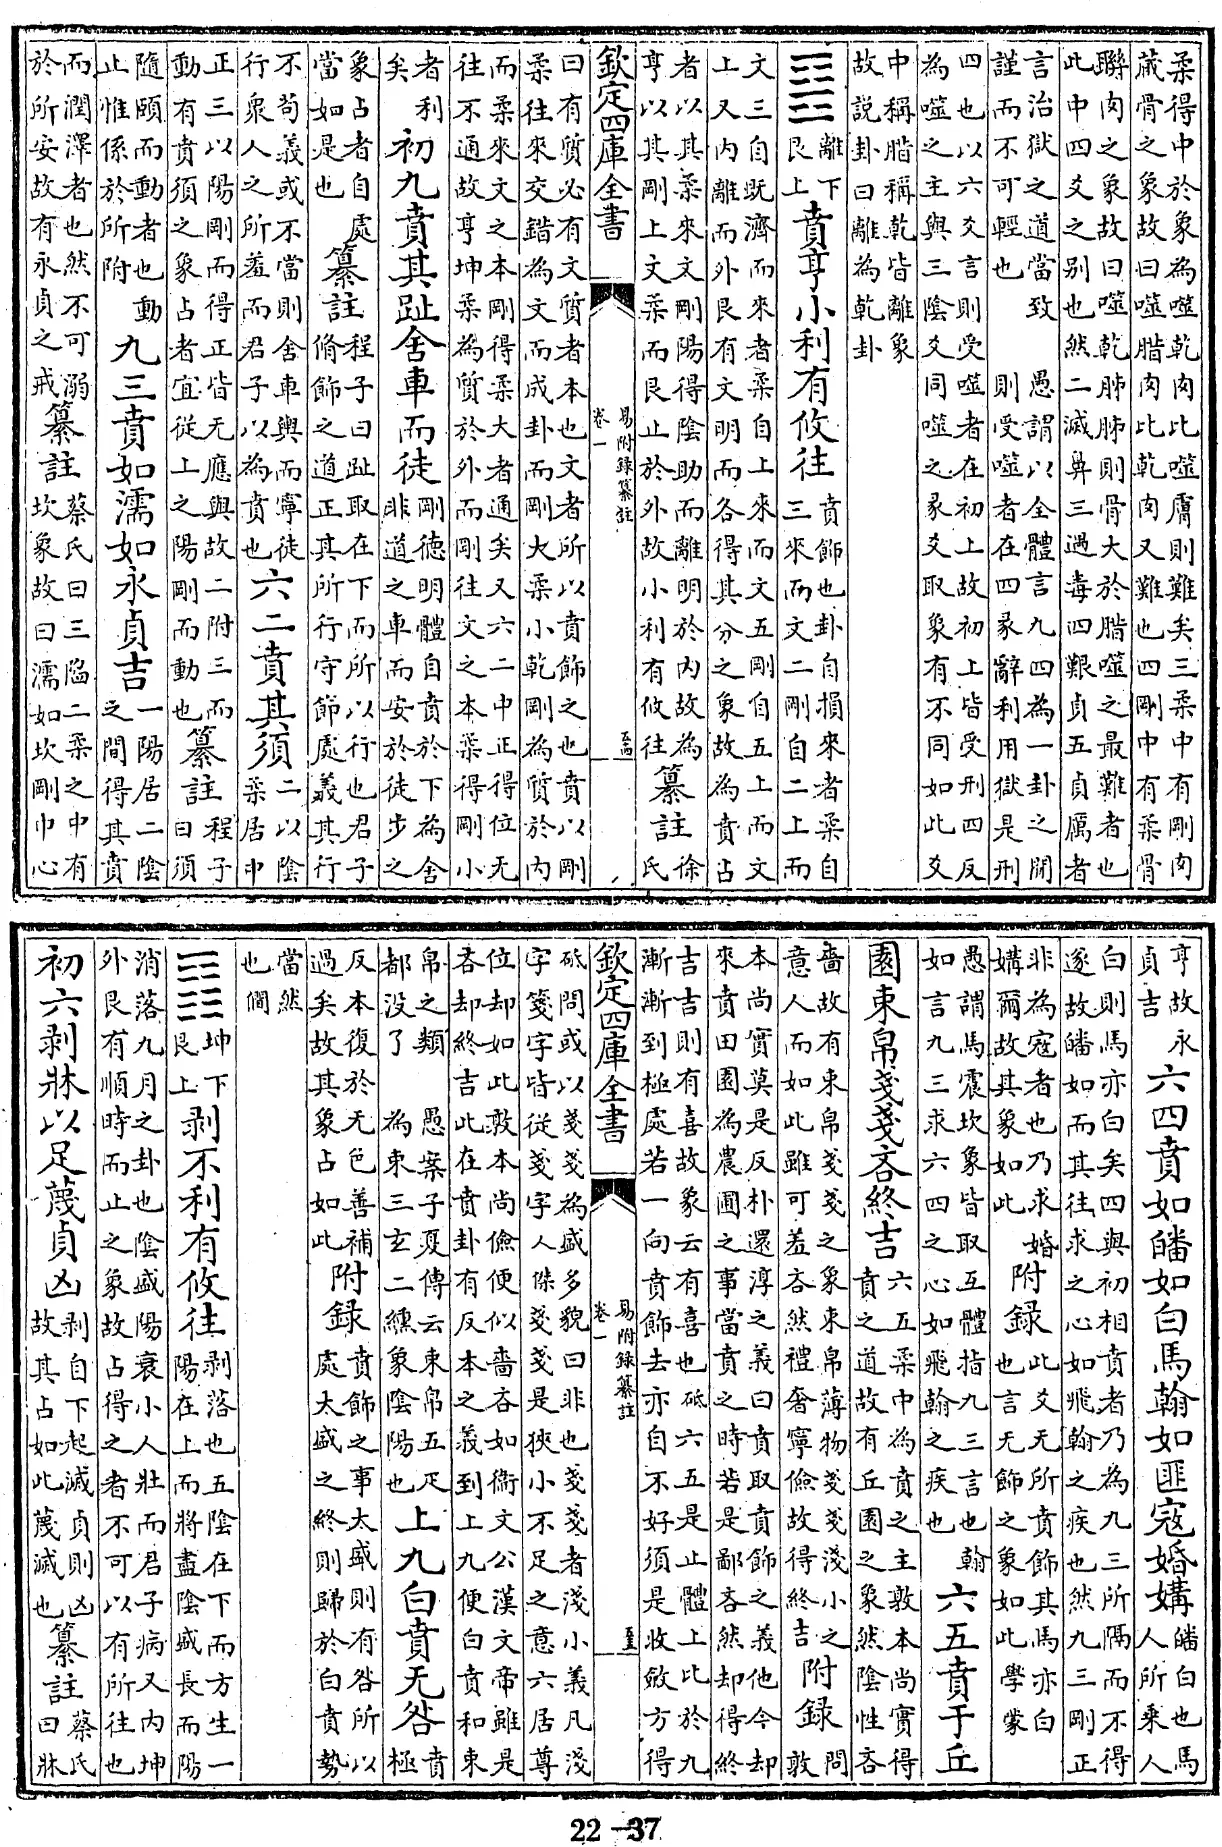 柔得中於象為噬乾肉比噬膚則難矣三柔中有剛肉
藏骨之象故曰噬腊肉比乾肉又難也四剛中有柔骨
聨肉之象故曰噬乾胏胏則骨大於腊噬之最難者也
此中四爻之别也然二滅鼻三過毒四艱貞五貞厲者
言治獄之道當致
謹而不可輕也
愚謂以全體言九四為一卦之間
則受噬者在四彖辭利用獄是刑
四也以六爻言則受噬者在初上故初上皆受刑四反
為噬之主與三陰爻同噬之彖爻取象有不同如此爻
中稱腊稱乾皆離象
故説卦曰離為乾卦
䷕
離下
艮上
賁亨小利有攸往
賁飾也卦自損來者柔自
三來而文二剛自二上而
文三自既濟而來者柔自上來而文五剛自五上而文
上又内離而外艮有文明而各得其分之象故為賁占
者以其柔來文剛陽得陰助而離明於内故為
亨以其剛上文柔而艮止於外故小利有攸往
纂註
徐
氏
欽定四庫全書
易附録纂註
卷一
曰有質必有文質者本也文者所以賁飾之也賁以剛
柔往來交錯為文而成卦而剛大柔小乾剛為質於内
而柔來文之本剛得柔大者通矣又六二中正得位无
往不通故亨坤柔為質於外而剛往文之本柔得剛小
者利
矣
初九賁其趾舍車而徒
剛德明體自賁於下為舍
非道之車而安於徒步之
象占者自處
當如是也
纂註
程子曰趾取在下而所以行也君子
脩飾之道正其所行守節處義其行
不苟義或不當則舍車輿而寧徒
行衆人之所羞而君子以為賁也
六二賁其須
二以陰
柔居中
正三以陽剛而得正皆无應與故二附三而
動有賁須之象占者宜從上之陽剛而動也
纂註
程子
曰須
隨頤而動者也動
止惟係於所附
九三賁如濡如永貞吉
一陽居二陰
之間得其賁
而潤澤者也然不可溺
於所安故有永貞之戒
纂註
蔡氏曰三陷二柔之中有
坎象故曰濡如坎剛中心
亨故永
貞吉
六四賁如皤如白馬翰如匪寇婚媾
皤白也馬
人所乘人
白則馬亦白矣四與初相賁者乃為九三所隔而不得
遂故皤如而其往求之心如飛翰之疾也然九三剛正
非為寇者也乃求婚
媾爾故其象如此
附録
此爻无所賁飾其馬亦白
也言无飾之象如此學蒙
愚謂馬震坎象皆取互體指九三言也翰
如言九三求六四之心如飛翰之疾也
六五賁于丘
園束帛戔戔吝終吉
六五柔中為賁之主敦本尚實得
賁之道故有丘園之象然陰性吝
嗇故有束帛戔戔之象束帛薄物戔戔淺小之
意人而如此雖可羞吝然禮奢寧儉故得終吉
附録
問
敦
本尚實莫是反朴還淳之義曰賁取賁飾之義他今却
來賁田園為農圃之事當賁之時若是鄙吝然却得終
吉吉則有喜故象云有喜也砥六五是止體上比於九
漸漸到極處若一向賁飾去亦自不好須是收斂方得
欽定四庫全書
易附録纂註
卷一
砥問或以戔戔為盛多貌曰非也戔戔者淺小義凡淺
字箋字皆從戔字人傑戔戔是狹小不足之意六居尊
位却如此敦本尚儉便似嗇吝如衞文公漢文帝雖是
吝却終吉此在賁卦有反本之義到上九便白賁和束
帛之類
都没了
愚案子夏傳云束帛五疋
為束三玄二纁象陰陽也
上九白賁无咎
賁
極
反本復於无色善補
過矣故其象占如此
附録
賁飾之事太盛則有咎所以
處太盛之終則歸於白賁勢
當然
也僩
䷖
坤下
艮上
剥不利有攸往
剥落也五陰在下而方生一
陽在上而將盡陰盛長而陽
消落九月之卦也陰盛陽衰小人壯而君子病又内坤
外艮有順時而止之象故占得之者不可以有所往也
初六剥牀以足蔑貞凶
剥自下起滅貞則凶
故其占如此蔑滅也
纂註
蔡氏
曰牀
22-37